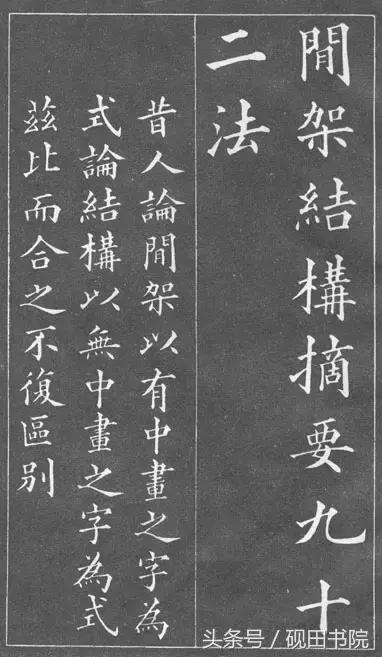 間架結構摘要九十
二法
昔人論間架以有中畫之字為
式論結構以無中畫之字為式
茲比而合之不復區别
头条号／砚田书院